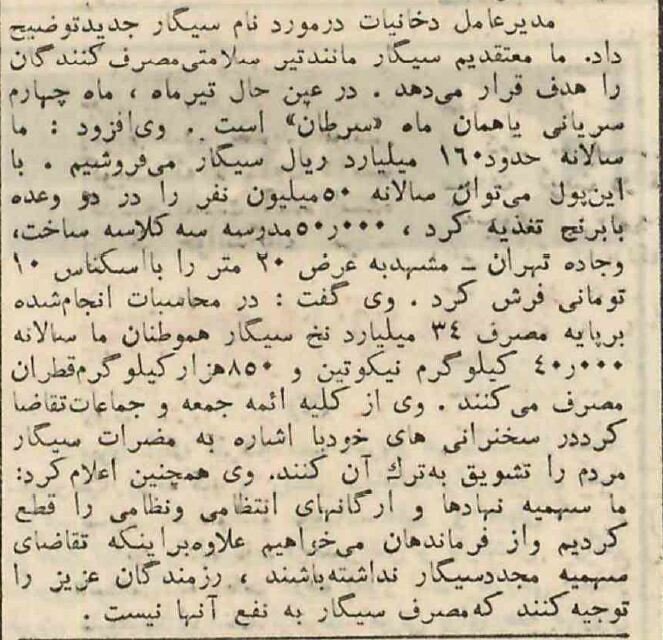 مدیرعامل دخانیات درمورد نام سیگار جدیدتوضیح
داد. ما معتقدیم سیگار مانندتیر سلامتی‌مصرف کنندگان
را هدف قرار می‌دهد . در عین حال تیرماه ، ماه چهارم
سریانی یاهمان ماه «سرطان» است . وی‌افزود : ما
سالانه حدود۱۶۰ میلیارد ریال سیگار می‌فروشیم . با
این‌پول می‌توان سالانه ۵۰میلیون نفر را در دو وعده
بابرنج تغذیه کرد ، ۵۰ر۰۰۰مدرسه سه کلاسه ساخت،
وجاده تهران ـ مشهدبه عرض ۲۰ متر را بااسکناس ۱۰
تومانی فرش کرد . وی گفت : در محاسبات انجام‌شده
برپایه مصرف ۳۴ میلیارد نخ سیگار هموطنان ما سالانه
۴۰ر۰۰۰ کیلوگرم نیکوتین و ۸۵۰هزارکیلوگرم‌قطران
مصرف می‌کنند . وی از کلیه ائمه جمعه و جماعات‌تقاضا
کرددر سخنرانی های خودبا اشاره به مضرات سیگار
مردم را تشویق به‌ترك آن کنند. وی همچنین اعلام‌کرد:
ما سهمیه نهادها و ارگانهای انتظامی ونظامی را قطع
کردیم واز فرماندهان می‌خواهیم علاوه‌براینکه تقاضای
سهمیه مجددسیگار نداشته‌باشند ، رزمندگان عزیز را
توجیه‌کنند که‌مصرف سیگار به نفع آنها نیست .